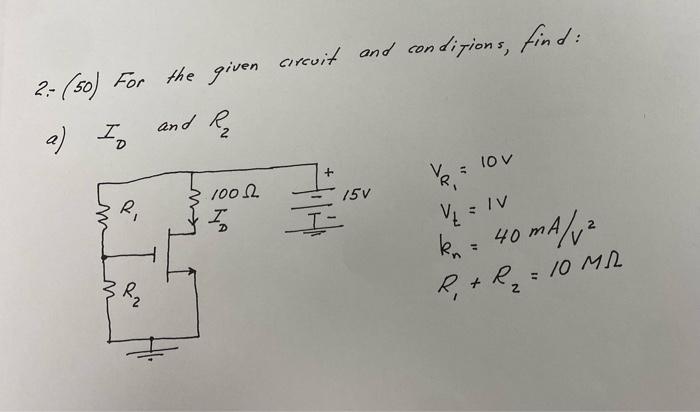 2.- (50) For the given circuit and conditions, find:
a) I_D and R_2
R_1
100 Ω
I_D
+
15V
-
R_2
V_R_1 = 10V
V_t = 1V
k_n = 40 mA/V²
R_1 + R_2 = 10 MΩ